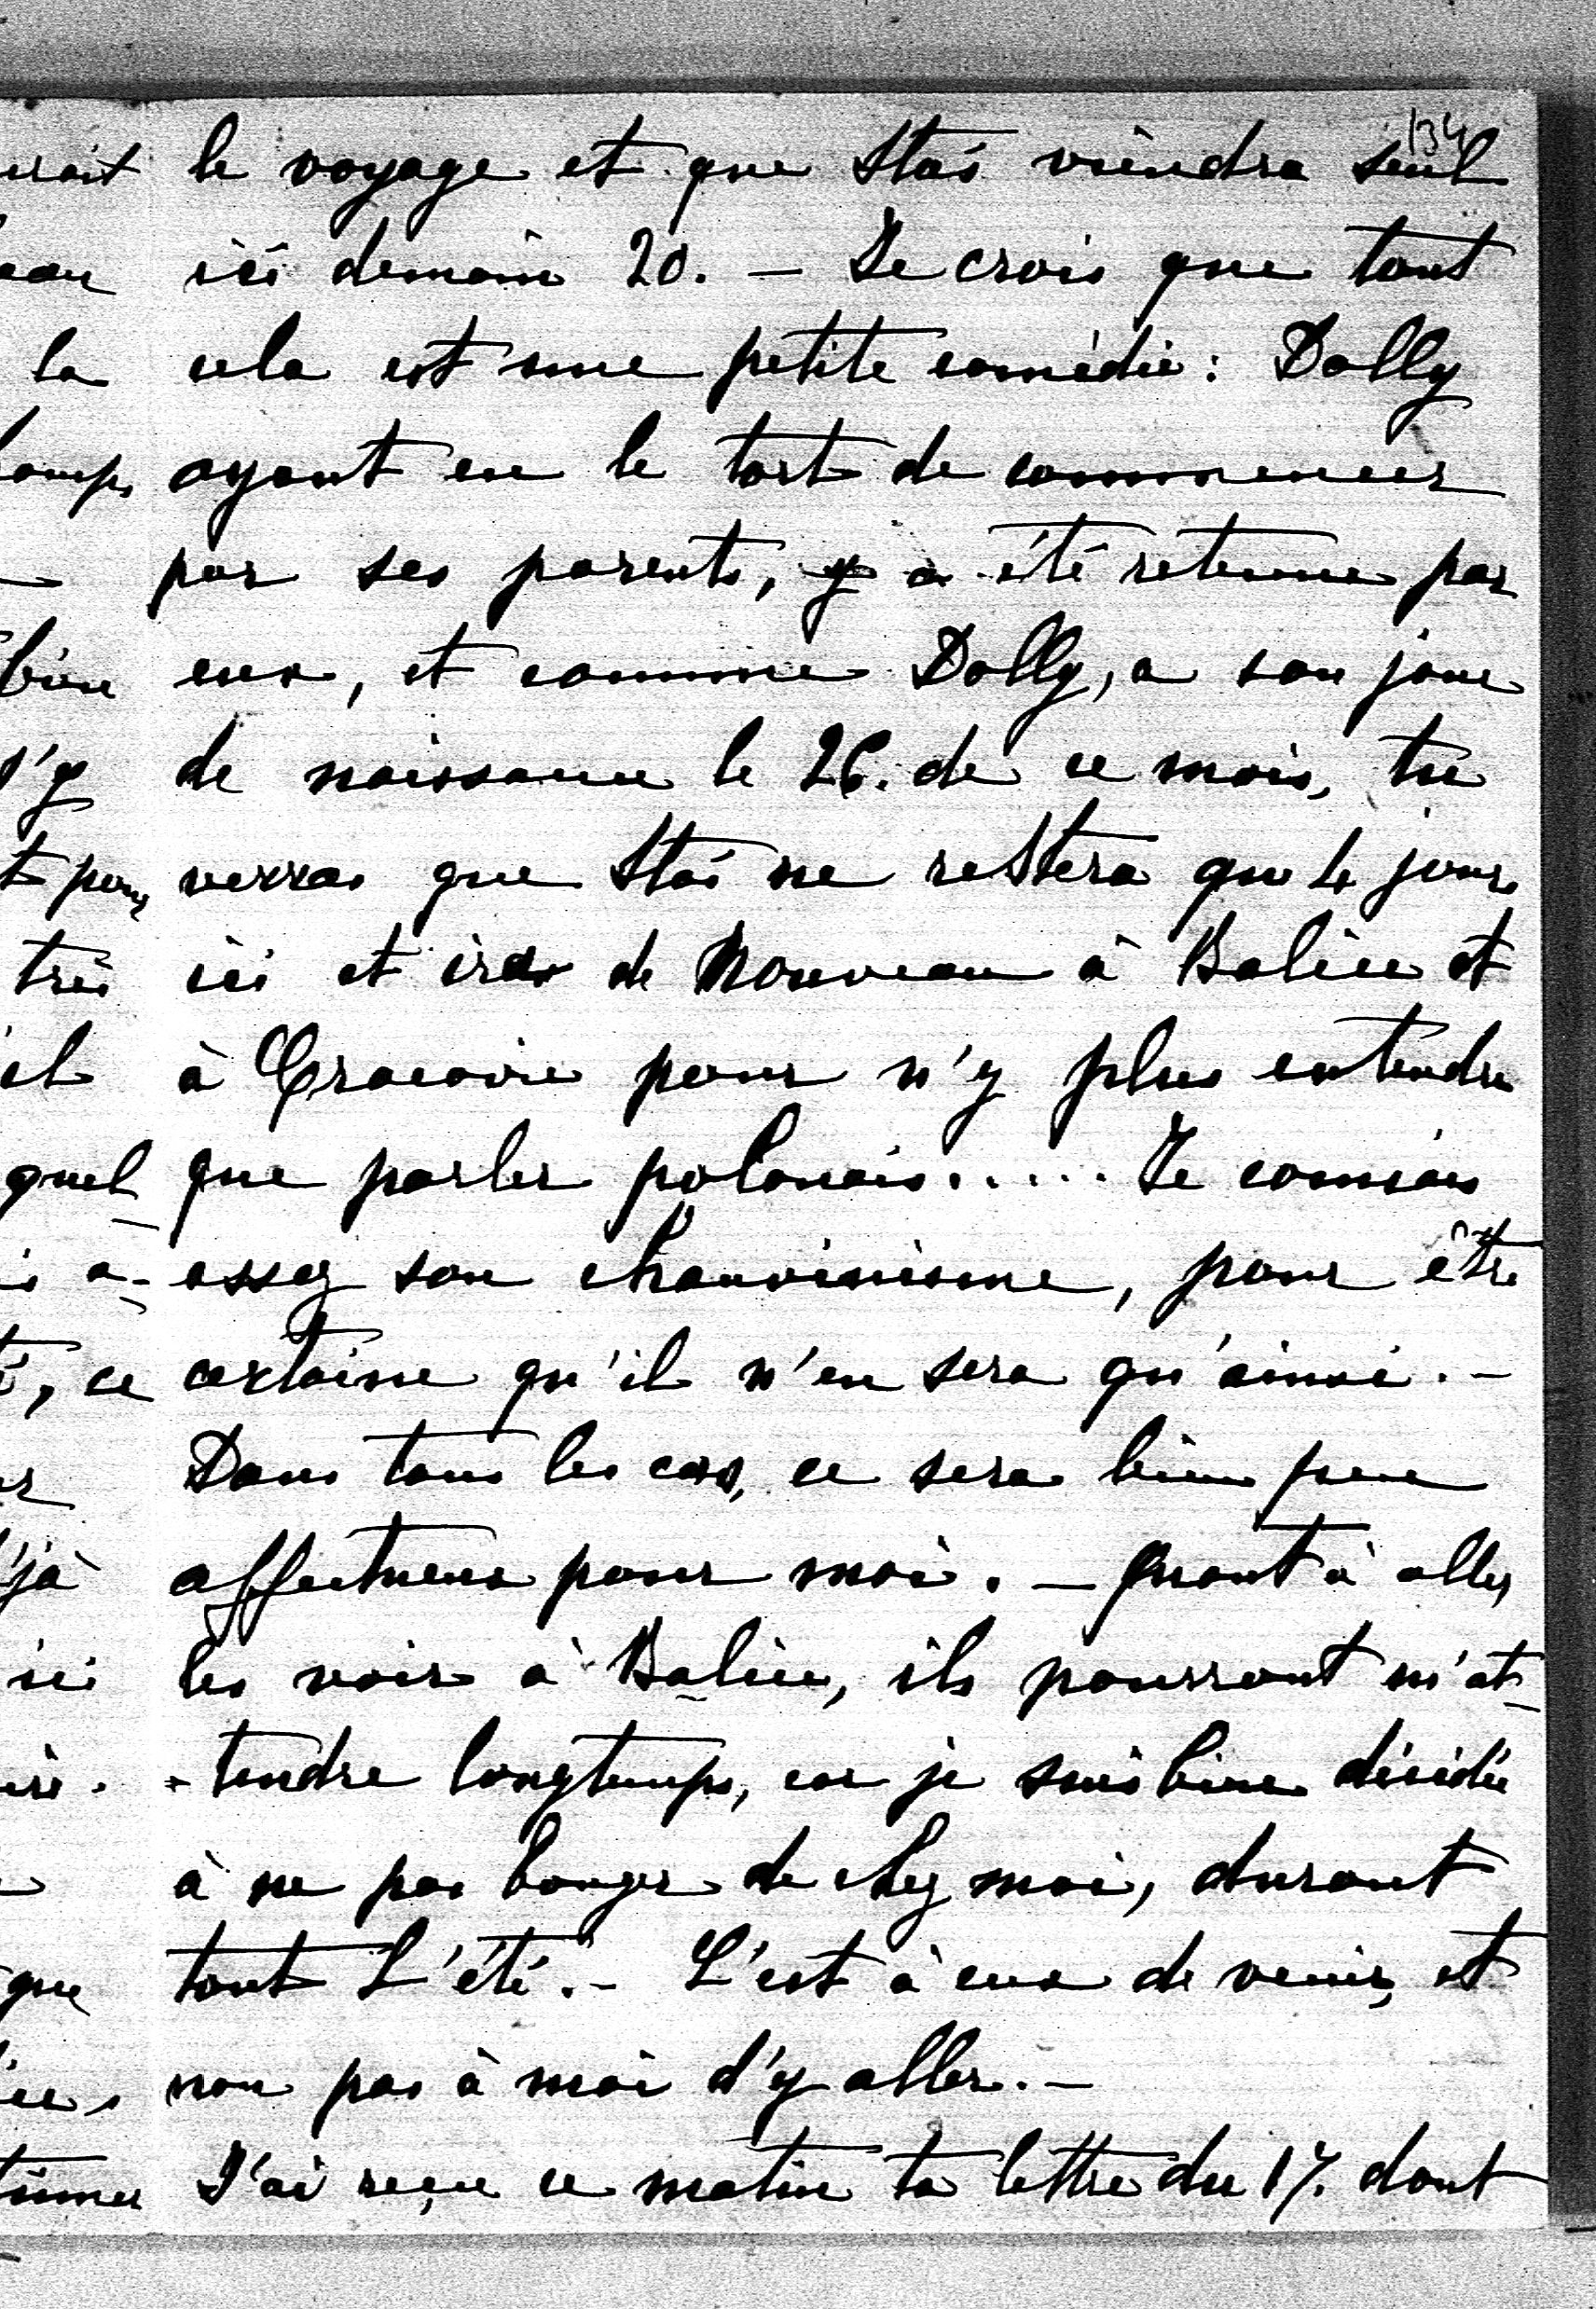 134
le voyage et que Staś viendra seul
ici demain 20. — Je crois que tout
cela est une petite comédie : Dolly
ayant eu le tort de commencer
par ses parents, y a été retenue par
eux, et comme Dolly, a son jour
de naissance le 26. de ce mois, tu
verras que Staś ne restera que 4 jours
ici et ira de Nouveau à Balice et
à Cracovie pour n'y plus entendre
que parler polonais..... Je connais
assez son chauvinisme, pour être
certaine qu'il n'en sera qu'ainsi. —
Dans tous les cas, ce sera bien peu
affectueux pour moi. — Quant à aller
les voir à Balice, ils pourront m'at-
-tendre longtemps, car je suis bien décidée
à ne pas bouger de chez moi, durant
tout L'été. — C'est à eux de venir, et
non pas à moi d'y aller. —
J'ai reçu ce matin ta lettre du 17. dont